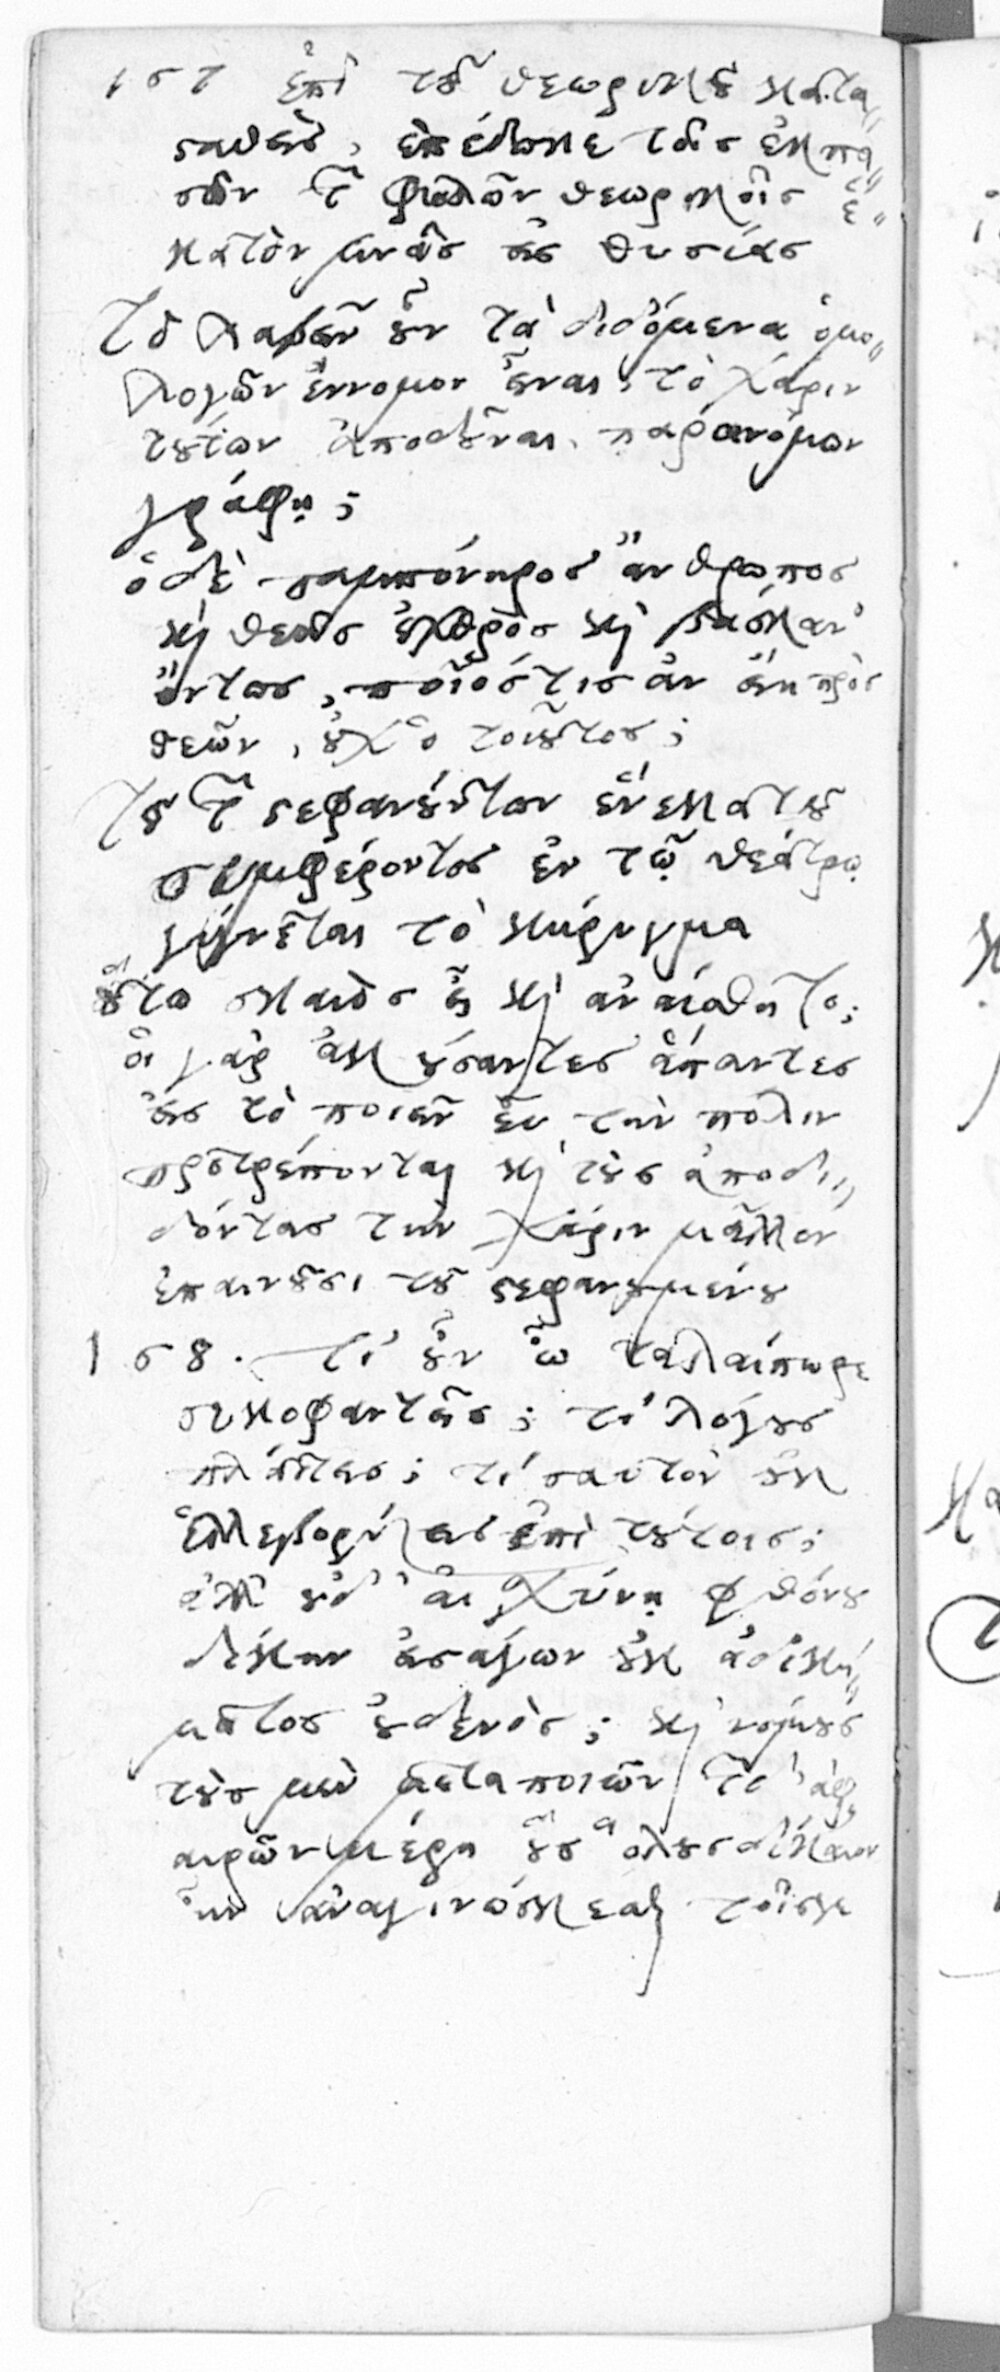 157 ἐπὶ τοῦ θεωρικοῦ κατα„
σταθεὶς, ἐπέδωκε τοῖς ἐκ πα„
σῶν τῶν φυλῶν θεωρικοῖς ἑ„
κατὸν μνᾶς εἰς θυσίας
Τὸ λαβεῖν οὖν τὰ διδόμενα ὁμο„
λογῶν ἔννομον εἶναι, τὸ χάριν
τούτων ἀποδοῦναι, παρανόμων
γράφῃ;
ὁ δὲ παμπόνηρος ἄνθρωπος
καὶ θεοῖς ἐχθρὸς καὶ βάσκανος
ὄντως, ποῖός τις ἂν εἴη πρὸς
θεῶν, οὐχ ὁ τοιοῦτος;
Τοῦ τῶν στεφανούντων εἵνεκα τοῦ
συμφέροντος ἐν τῷ θεάτρῳ
γίγνεται τὸ κήρυγμα
οὕτω σκαιὸς εἶ καὶ ἀναίσθητος;
οἱ γὰρ ἀκούσαντες ἅπαντες
εἰς τὸ ποιεῖν εὖ τὴν πόλιν
προτρέπονται καὶ τοὺς ἀποδι„
δόντας τὴν χάριν μᾶλλον
ἐπαινοῦσι τοῦ στεφανουμένου
158. Τί οὖν ὦ ταλαίπωρε
συκοφαντεῖς; τί λόγους
πλάττεις; τί σαυτὸν οὐκ
ἑλλεβορίζεις ἐπὶ τούτοις;
ἀλλ' οὐδ' αἰσχύνῃ φθόνου
δίκην εἰσάγων οὐκ ἀδική„
ματος οὐδενός; καὶ νόμους
τοὺς μὲν μεταποιῶν τῶν δ' ἀφ„
αιρῶν μέρη οὓς ὅλους δίκαιον
ἦν ἀναγινώσκεσθαι τοῖς γε